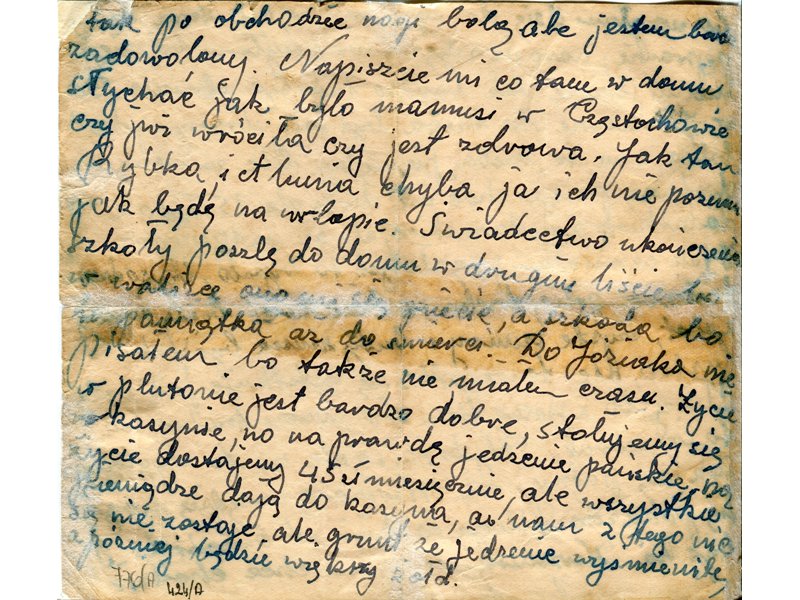 tak po obchodzie nogi bolą ale jestem bard
zadowolony. Napiszcie mi co tam w domu
słychać jak było mamusi w Częstochowie
czy już wróciła czy jest zdrowa. Jak tam
Rybka i chyba ja ich nie poznam
jak będę na urlopie. Świadectwo ukończenia
szkoły poszlę do domu w drugim liście bo
w walizce mi się gniecie, a szkoda bo
pamiątka aż do śmierci. Do Józiaka nie
pisałem bo także nie miałem czasu. Życie
w plutonie jest bardzo dobre, stołujemy się
w kasynie, no na prawdę jedzenie pańskie, na
życie dostajemy 45 zł miesięcznie, ale wszystkie
pieniądze dają do kasyna, a nam z tego nic
się nie zostaje, ale grunt że jedzenie wyśmienite,
a później będzie większy żołd.
776/A 424/A